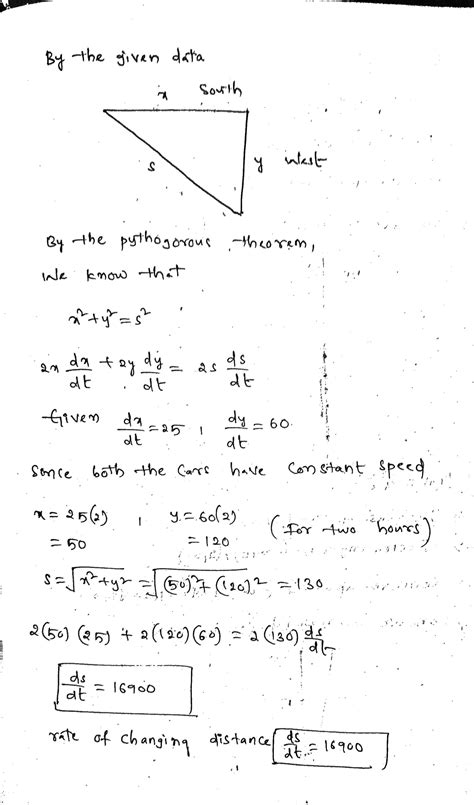 By the given data
x South
s
y West
By the pythogorous theorem,
We know that
x²+y²=s²
2x dx/dt + 2y dy/dt = 2s ds/dt
Given dx/dt = 25, dy/dt = 60.
Sonce both the cars have constant speed
x = 25(2), y = 60(2) (for two hours)
= 50 = 120
s = √x²+y² = √(50)²+(120)² = 130
2(50)(25) + 2(120)(60) = 2(130) ds/dt
ds/dt = 16900
rate of changing distance ds/dt = 16900